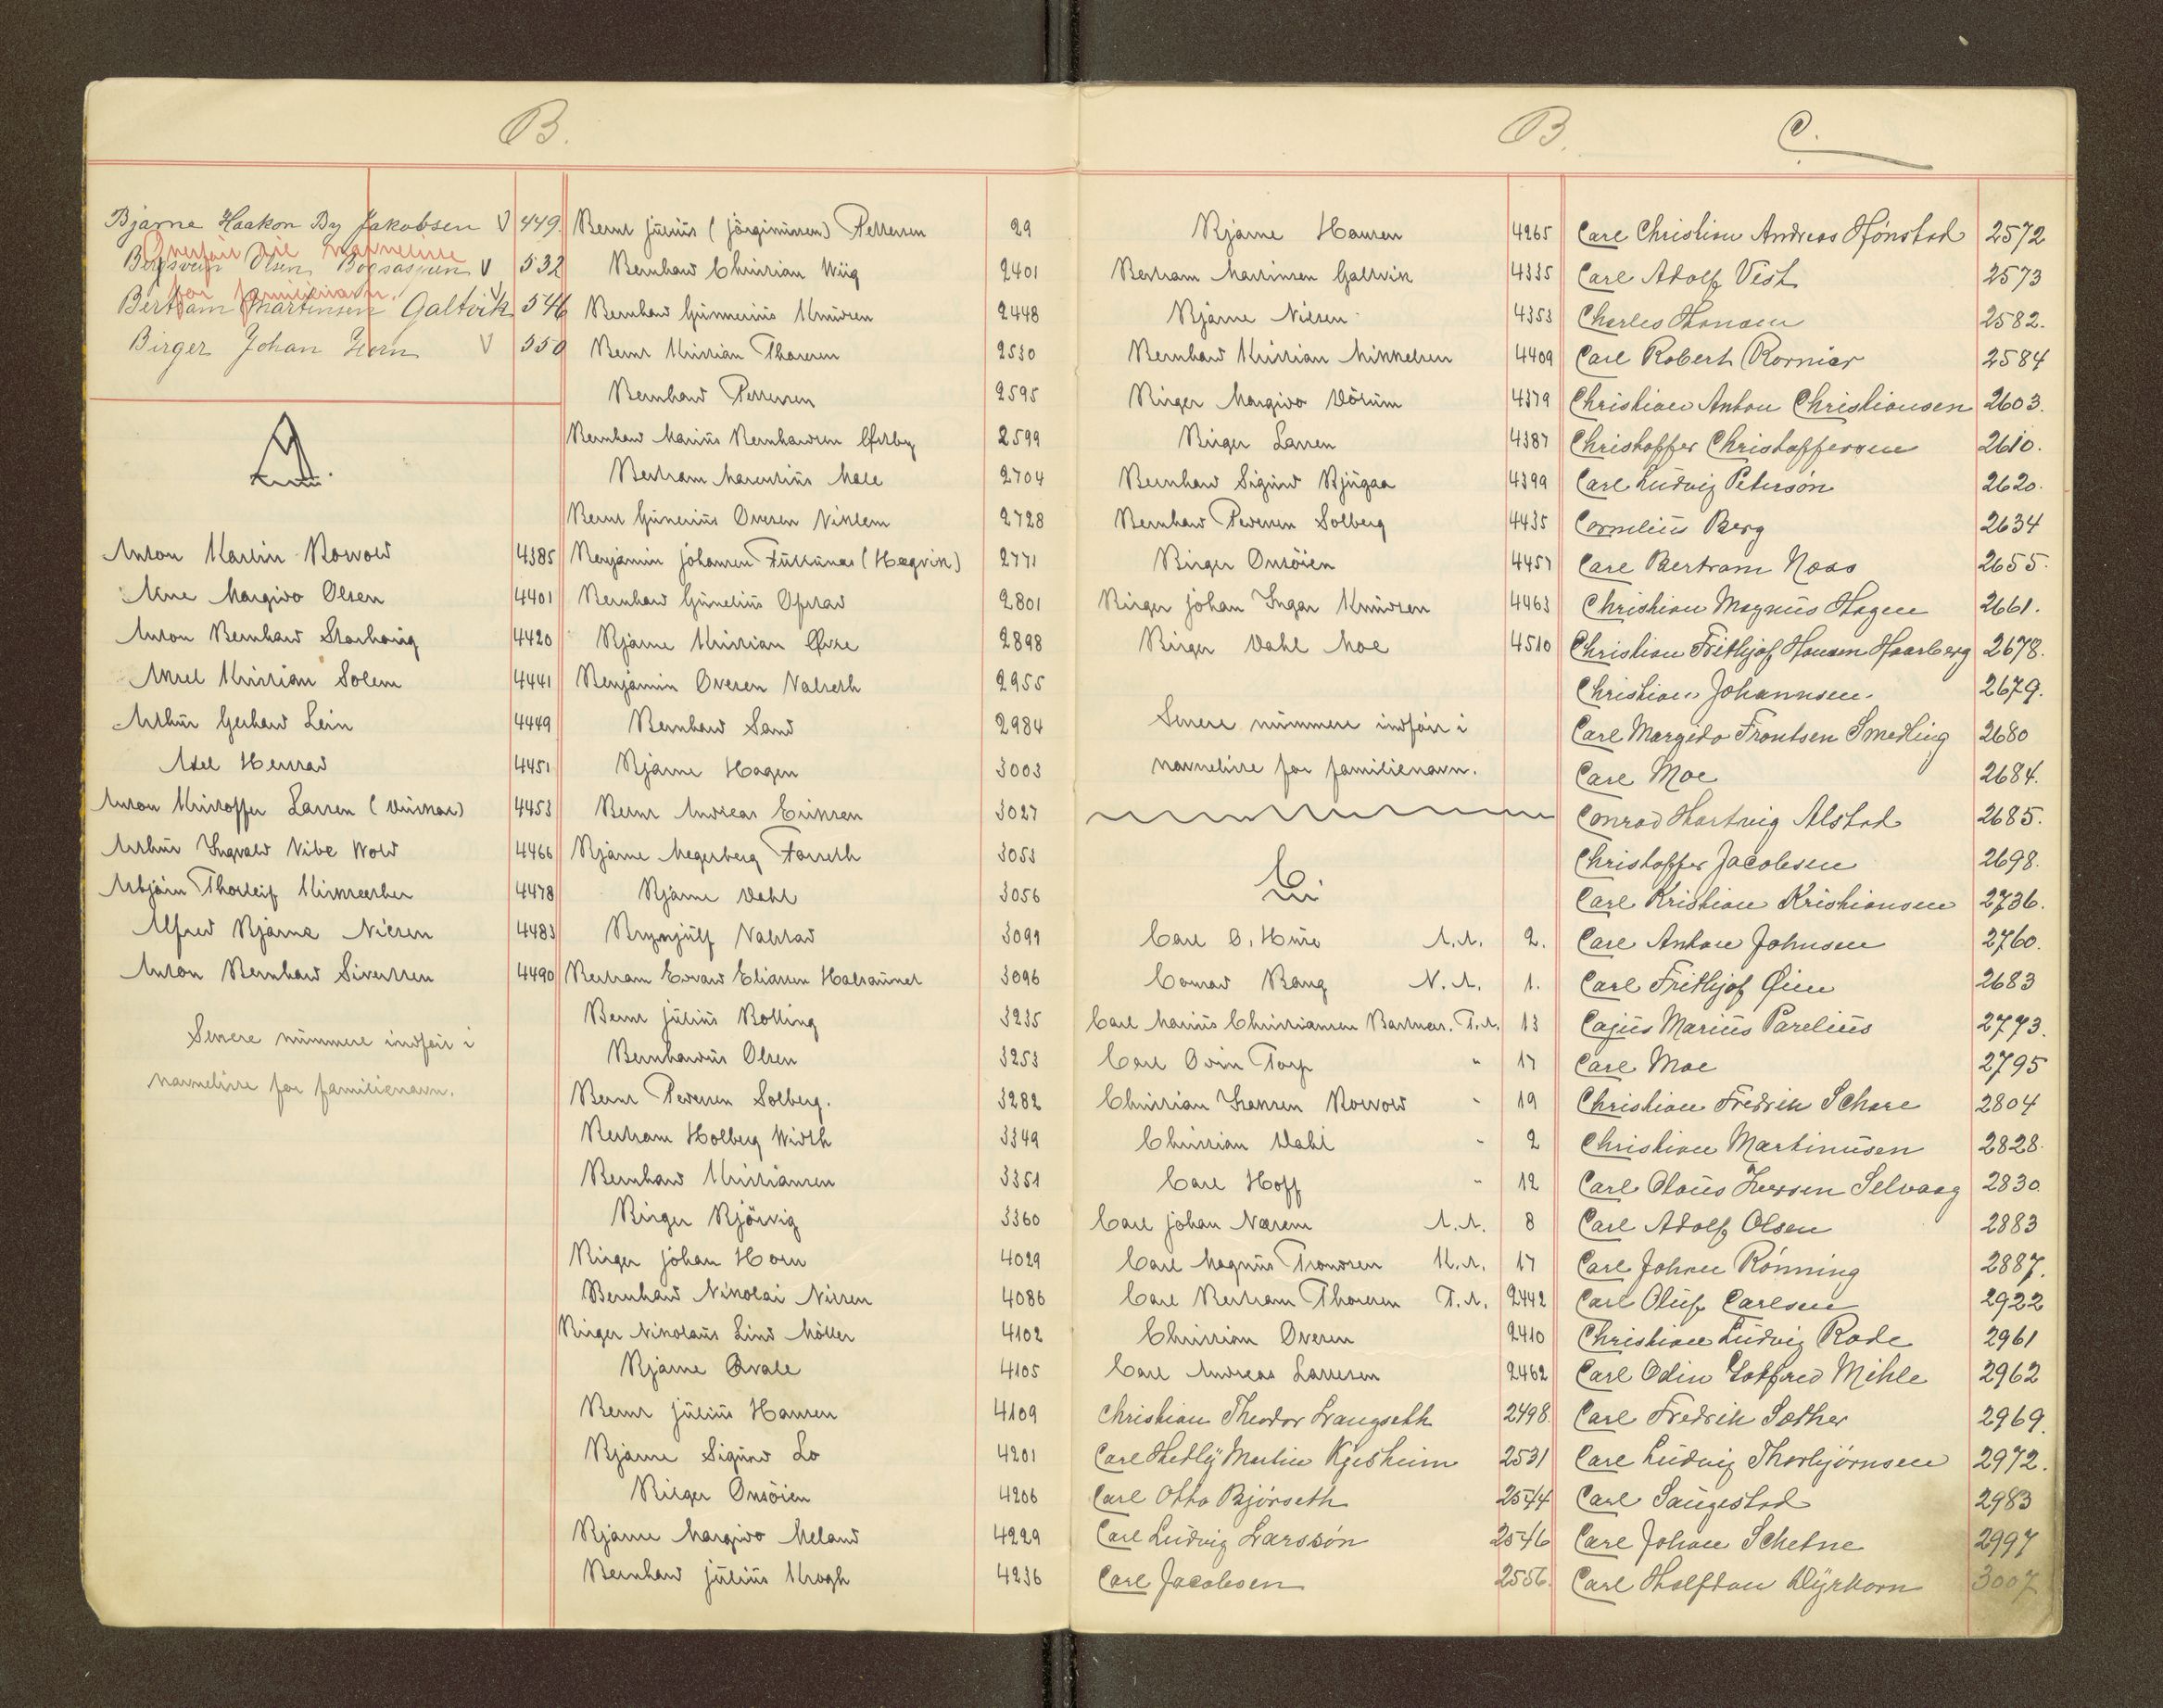 B.
Bjarne Haakon By Jakobsen V 449.
Overført til navneliste
Bergsvein Olsen V 532
for familienavn.
Bertram Martinsen Galtvik V 546
Birger Johan Horn V 550
A.
Anton Martin Rosvold 4385
Arne Margido Olsen 4401
Anton Bernhard Storhaug 4420
Aksel Kristian Solem 4441
Arthur Gerhard Lein 4449
Axel Hernad 4451
Anton Kristoffer Larsen 4453
Arthur Ingvald Vibe Wold 4466
Asbjörn Thorleif Kirksæther 4478
Alfred Bjarne Nilsen 4483
Anton Bernhard Sivertsen 4490
Senere nummere indført i
navneliste for familienavn.
Bernt Julius (Jörginussen) Pettersen 29
Bernhard Christian Wiig 2401
Bernhard Gunnerius Knudsen 2448
Bernt Kristian Thoresen 2530
Bernhard Pettersen 2595
Bernhard Marius Bernhardsen Østby 2599
Bertram Marentius Male 2704
Bernt Gunerius Ovesen Viklem 2728
Benjamin Johansen Futtunes (Hægvik) 2771
Bernhard Gunelius Opstad 2801
Bjarne Kristian Øvre 2898
Benjamin Ovesen Valseth 2955
Bernhard Sand 2984
Bjarne Hagen 3003
Bernt Andreas Eriksen 3027
Bjarne Megerberg Forseth 3053
Bjarne Dahl 3056
Brynjulf Valstad 3091
Bertram Edvard Eliassen Halsaunet 3096
Bernt Julius Rolling 3235
Bernhardus Olsen 3253
Bernt Pedersen Solberg. 3282
Bertram Holberg Width 3349
Bernhard Kristiansen 3351
Birger Bjørvig 3360
Birger Johan Horn 4029
Bernhard Nikolai Nilsen 4086
Birger Nikolaus Lind Möller 4102
Bjarne Qvale 4105
Bernt Julius Hansen 4109
Bjarne Sigurd Lo 4201
Birger Onsöien 4206
Bjarne Margido Meland 4229
Bernhard Julius Krogh 4236
B.
Bjarne Hansen 4265
Bertram Martinsen Galtvik 4335
Bjarne Nilsen 4353
Bernhard Kristian Mikkelsen 4409
Birger Margido Börum 4379
Birger Larsen 4387
Bernhard Sigurd Bjugaa 4399
Bernhard Pedersen Solberg 4435
Birger Onsöien 4457
Birger Johan Ingar Knudsen 4463
Birger Dahl Moe 4510
Senere nummere indført i
navneliste for familienavn.
C.
Carl O. Huse A.A. 2.
Conrad Bang N.A. 1.
Carl Marius Christiansen Bartnes. T.A. 13
Carl Odin Torp " 17
Christian Iversen Rosvold " 19
Christian Dahl " 2
Carl Hoff " 12
Carl Johan Næsem A.A. 8
Carl Magnus Trondsen K.A. 17
Carl Bertram Thoresen T.A. 2442
Christian Ovesen 2410
Carl Andreas Larsen 2462
Christian Theodor Langseth 2498
Carl Hetly Martin Kjesheim 2531
Carl Otto Bjørseth 2544
Carl Ludvig Larssön 2546
Carl Jacobsen 2556.
C.
Carl Christian Andreas Hönstad 2572
Carl Adolf Vist 2573
Charles Hansen 2582.
Carl Robert Rornier 2584
Christian Anton Christiansen 2603.
Christoffer Christoffersen 2610.
Carl Ludvig Petersön 2620.
Cornelius Berg 2634
Carl Bertram Næss 2655.
Christian Magnus Hagen 2661.
Christian Frithjof Hansen Haarberg 2678.
Christian Johannsen. 2679.
Carl Margido Frontsen Smedling 2680
Carl Moe 2684.
Conrad Hartvig Alstad 2685.
Christoffer Jacobsen 2698.
Carl Kristian Kristiansen 2736.
Carl Anton Johnsen 2760.
Carl Frithjof Øien 2683
Cajus Marius Parelius 2773.
Carl Moe 2795
Christian Fredrik Schare 2804
Christian Martinusen 2828.
Carl Olaus Iversen Selvaag 2830.
Carl Adolf Olsen 2883
Carl Johan Rönning 2887.
Carl Oluf Carlsen 2922
Christian Ludvig Rode 2961
Carl Odin Gotfred Mihle 2962
Carl Fredrik Sæther 2969.
Carl Ludvig Thorbjörnsen 2972.
Carl Saugestad 2983
Carl Johan Schetne 2997
Carl Halfdan Dyrkorn 3007